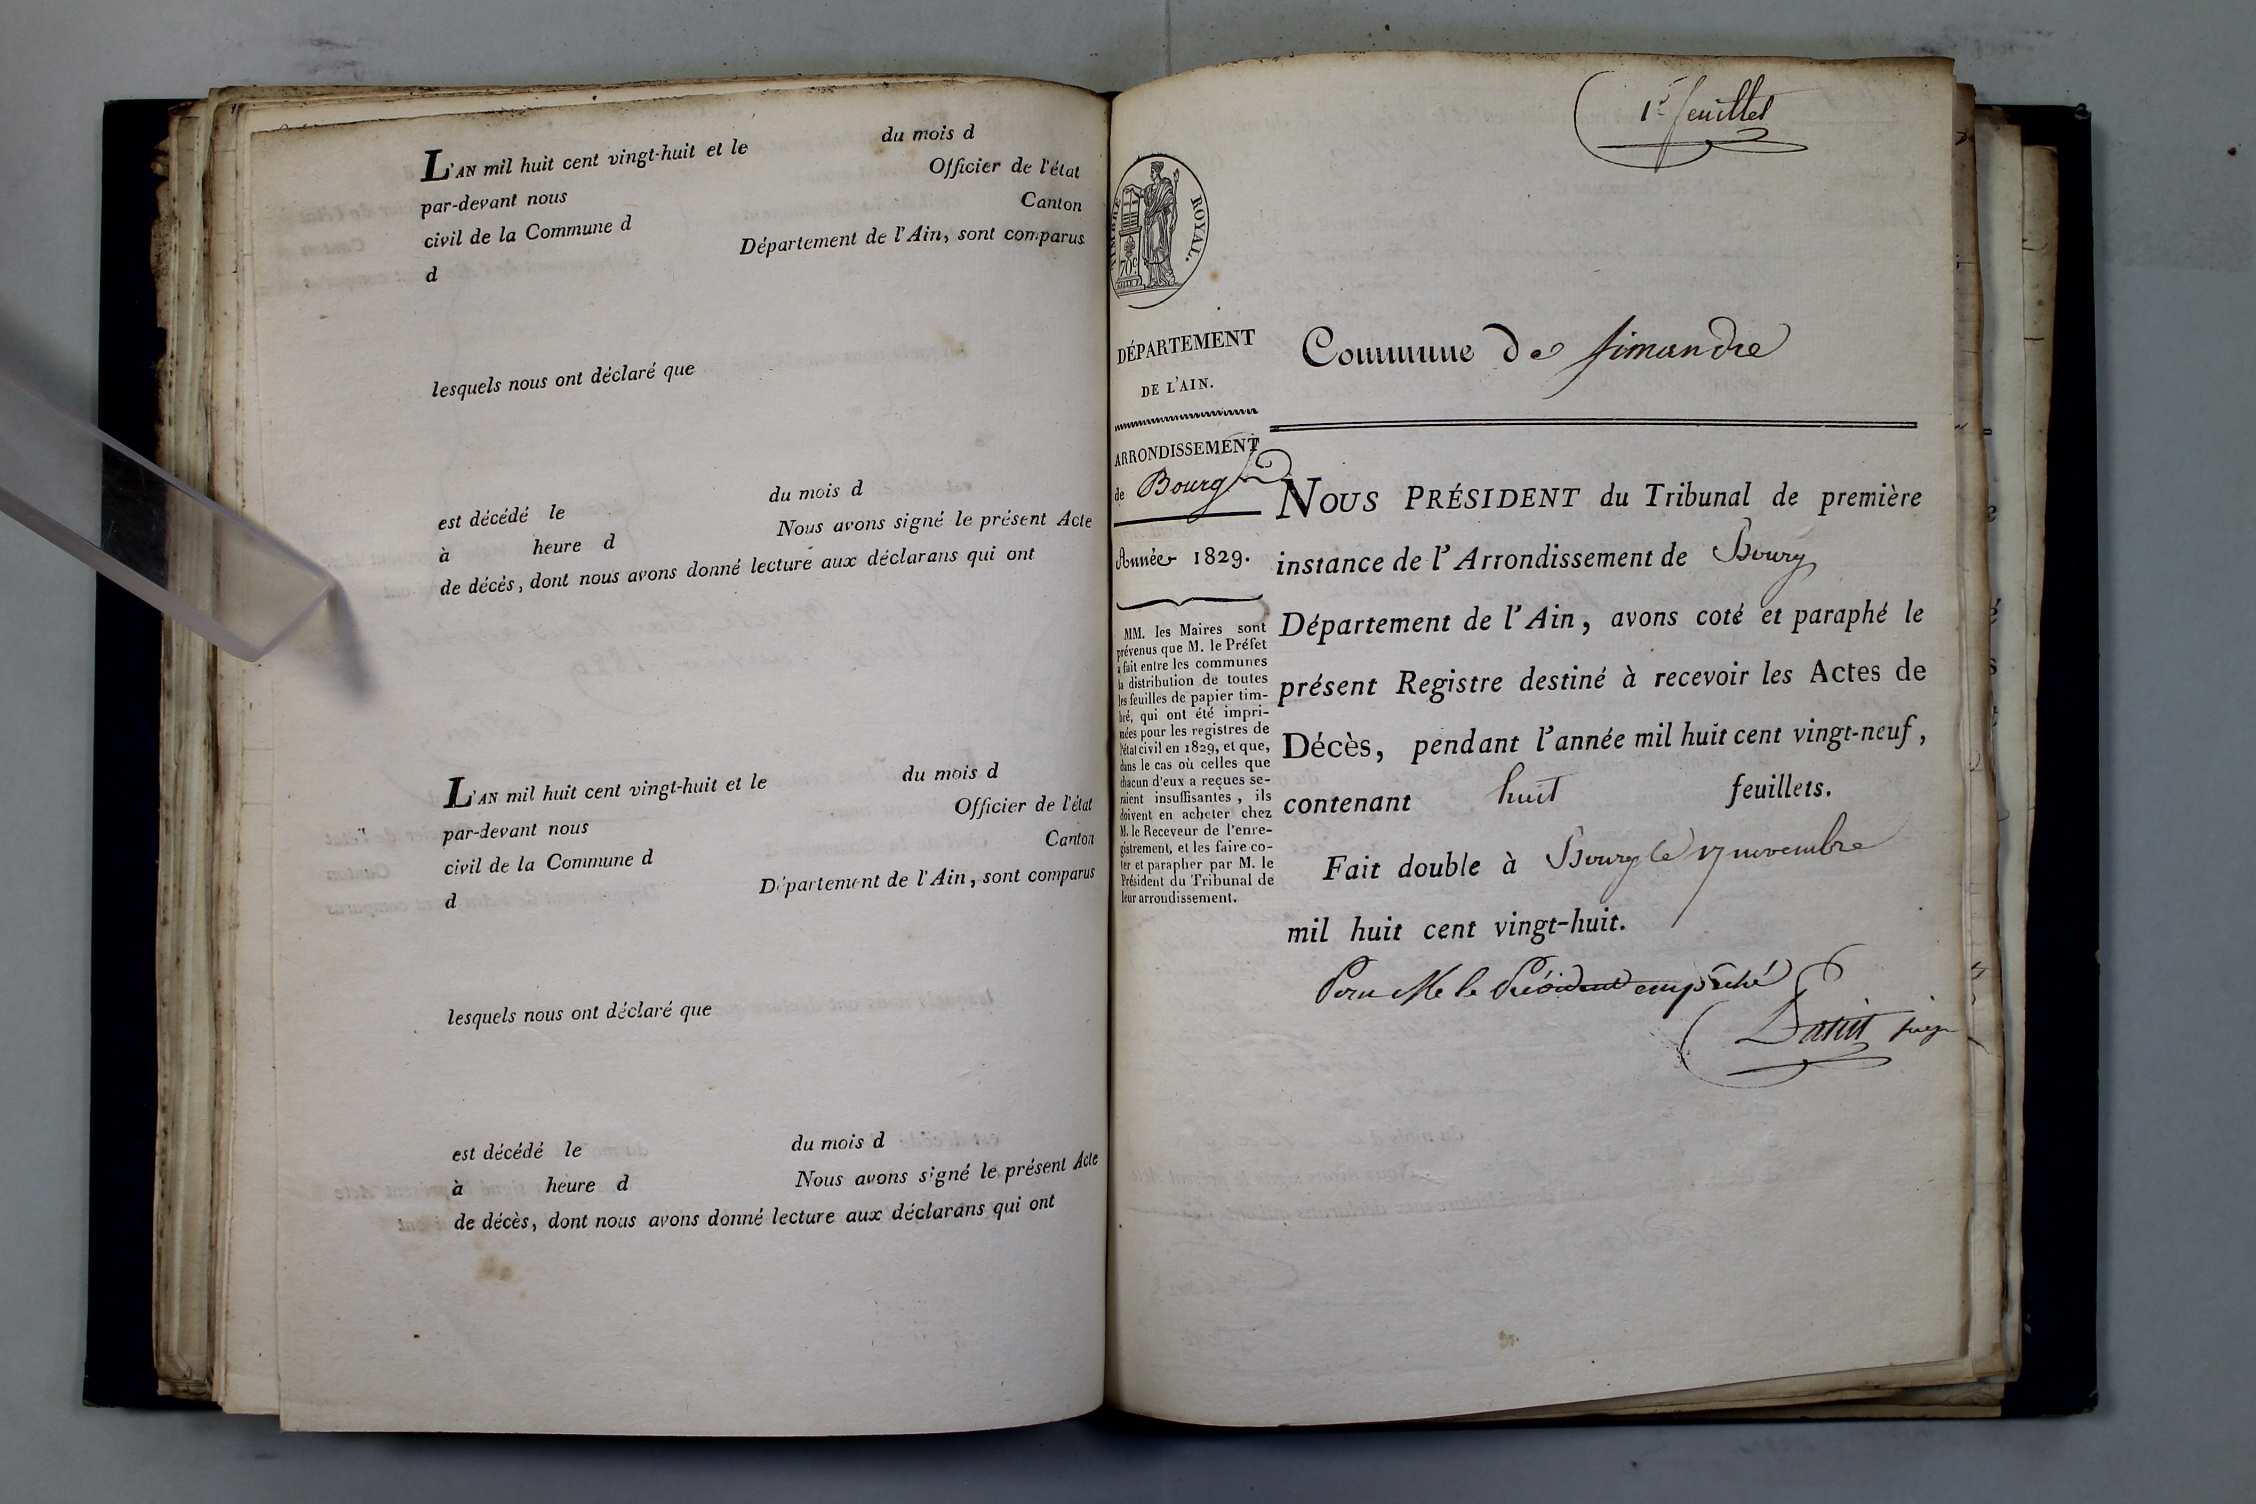 L'AN mil huit cent vingt-huit et le du mois d
par-devant nous Officier de l'état
civil de la Commune d Canton
d Département de l'Ain, sont comparus
lesquels nous ont déclaré que
est décédé le du mois d
à heure d Nous avons signé le présent Acte
de décès, dont nous avons donné lecture aux déclarans qui ont
L'AN mil huit cent vingt-huit et le du mois d
par-devant nous Officier de l'état
civil de la Commune d Canton
d Département de l'Ain, sont comparus
lesquels nous ont déclaré que
est décédé le du mois d
à heure d Nous avons signé le présent Acte
de décès, dont nous avons donné lecture aux déclarans qui ont
1er feuillet
TIMBRE ROYAL.
70c
DÉPARTEMENT
DE L'AIN.
ARRONDISSEMENT
de Bourg
Année 1829.
MM. les Maires sont
prévenus que M. le Préfet
a fait entre les communes
la distribution de toutes
les feuilles de papier tim-
bré, qui ont été impri-
mées pour les registres de
l'état civil en 1829, et que,
dans le cas où celles que
chacun d'eux a reçues se-
raient insuffisantes, ils
doivent en acheter chez
M. le Receveur de l'enre-
gistrement, et les faire co-
ter et parapher par M. le
Président du Tribunal de
leur arrondissement.
Commune de Simandre
NOUS PRÉSIDENT du Tribunal de première
instance de l'Arrondissement de Bourg
Département de l'Ain, avons coté et paraphé le
présent Registre destiné à recevoir les Actes de
Décès, pendant l'année mil huit cent vingt-neuf,
contenant huit feuillets.
Fait double à Bourg le 17 novembre
mil huit cent vingt-huit.
Pour Mr le Président empêché
juge